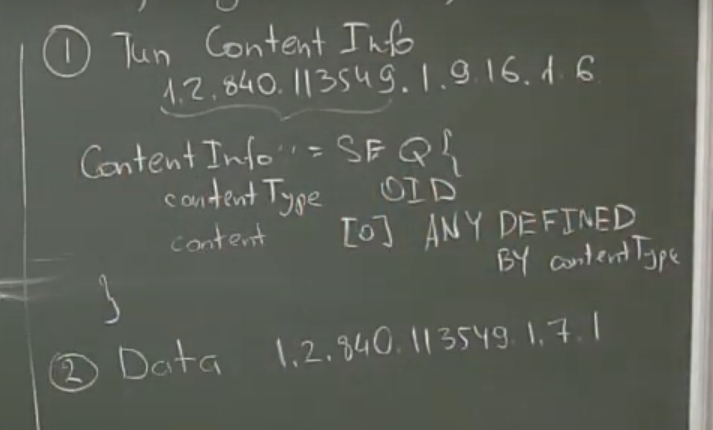 ① Тип Content Info
1.2.840.113549.1.9.16.1.6
ContentInfo ::= SEQ{
contentType OID
content [0] ANY DEFINED
BY contentType
}
② Data 1.2.840.113549.1.7.1